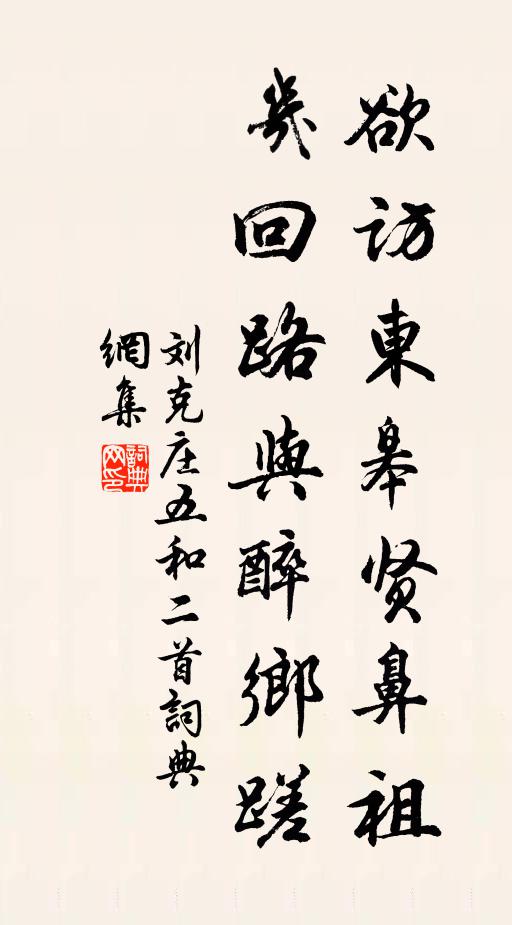 欲访東皋贤鼻祖
幾回路與醉鄉蹉
刘克庄五和二首詞典
網集
詞典網印